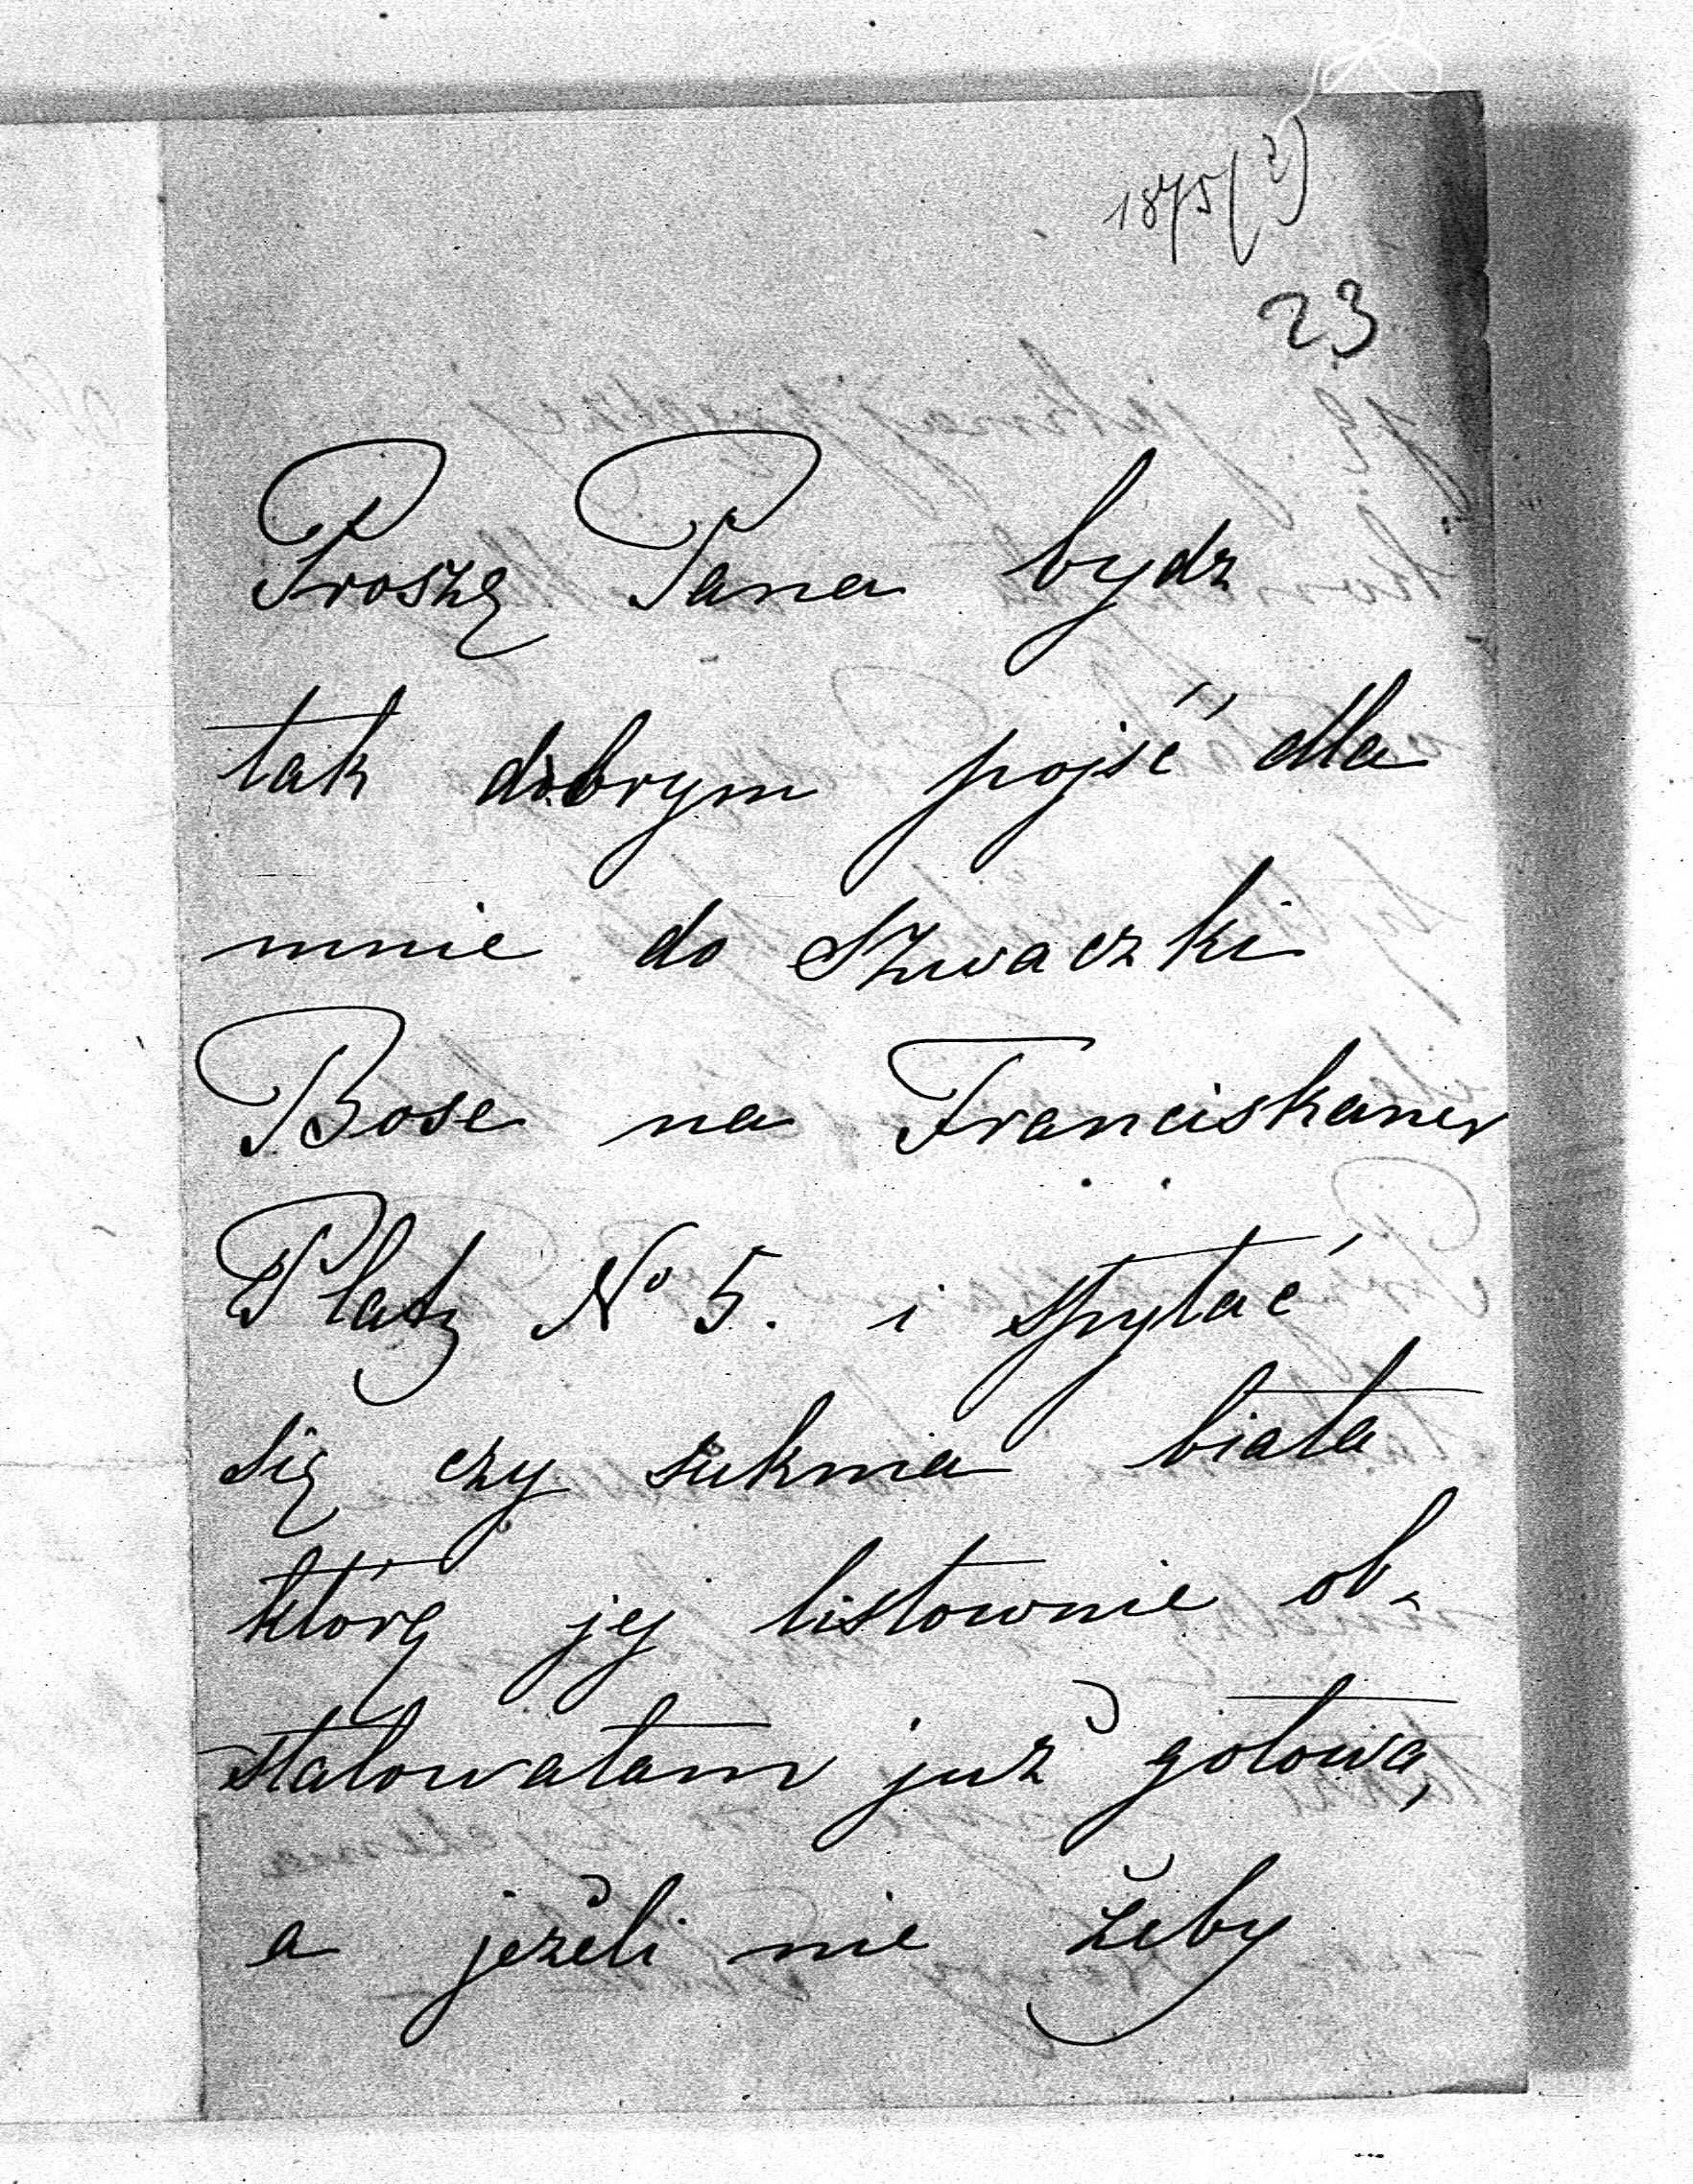 1875(?)
23
Proszę Pana bydz
tak dobrym pojść dla
mnie do Szwaczki
Bose na Franciskaner
Platz No 5. i spytać
się czy suknia biała
którę jej listownie ob-
stalowałam już gotowa,
a jeżeli nie żeby